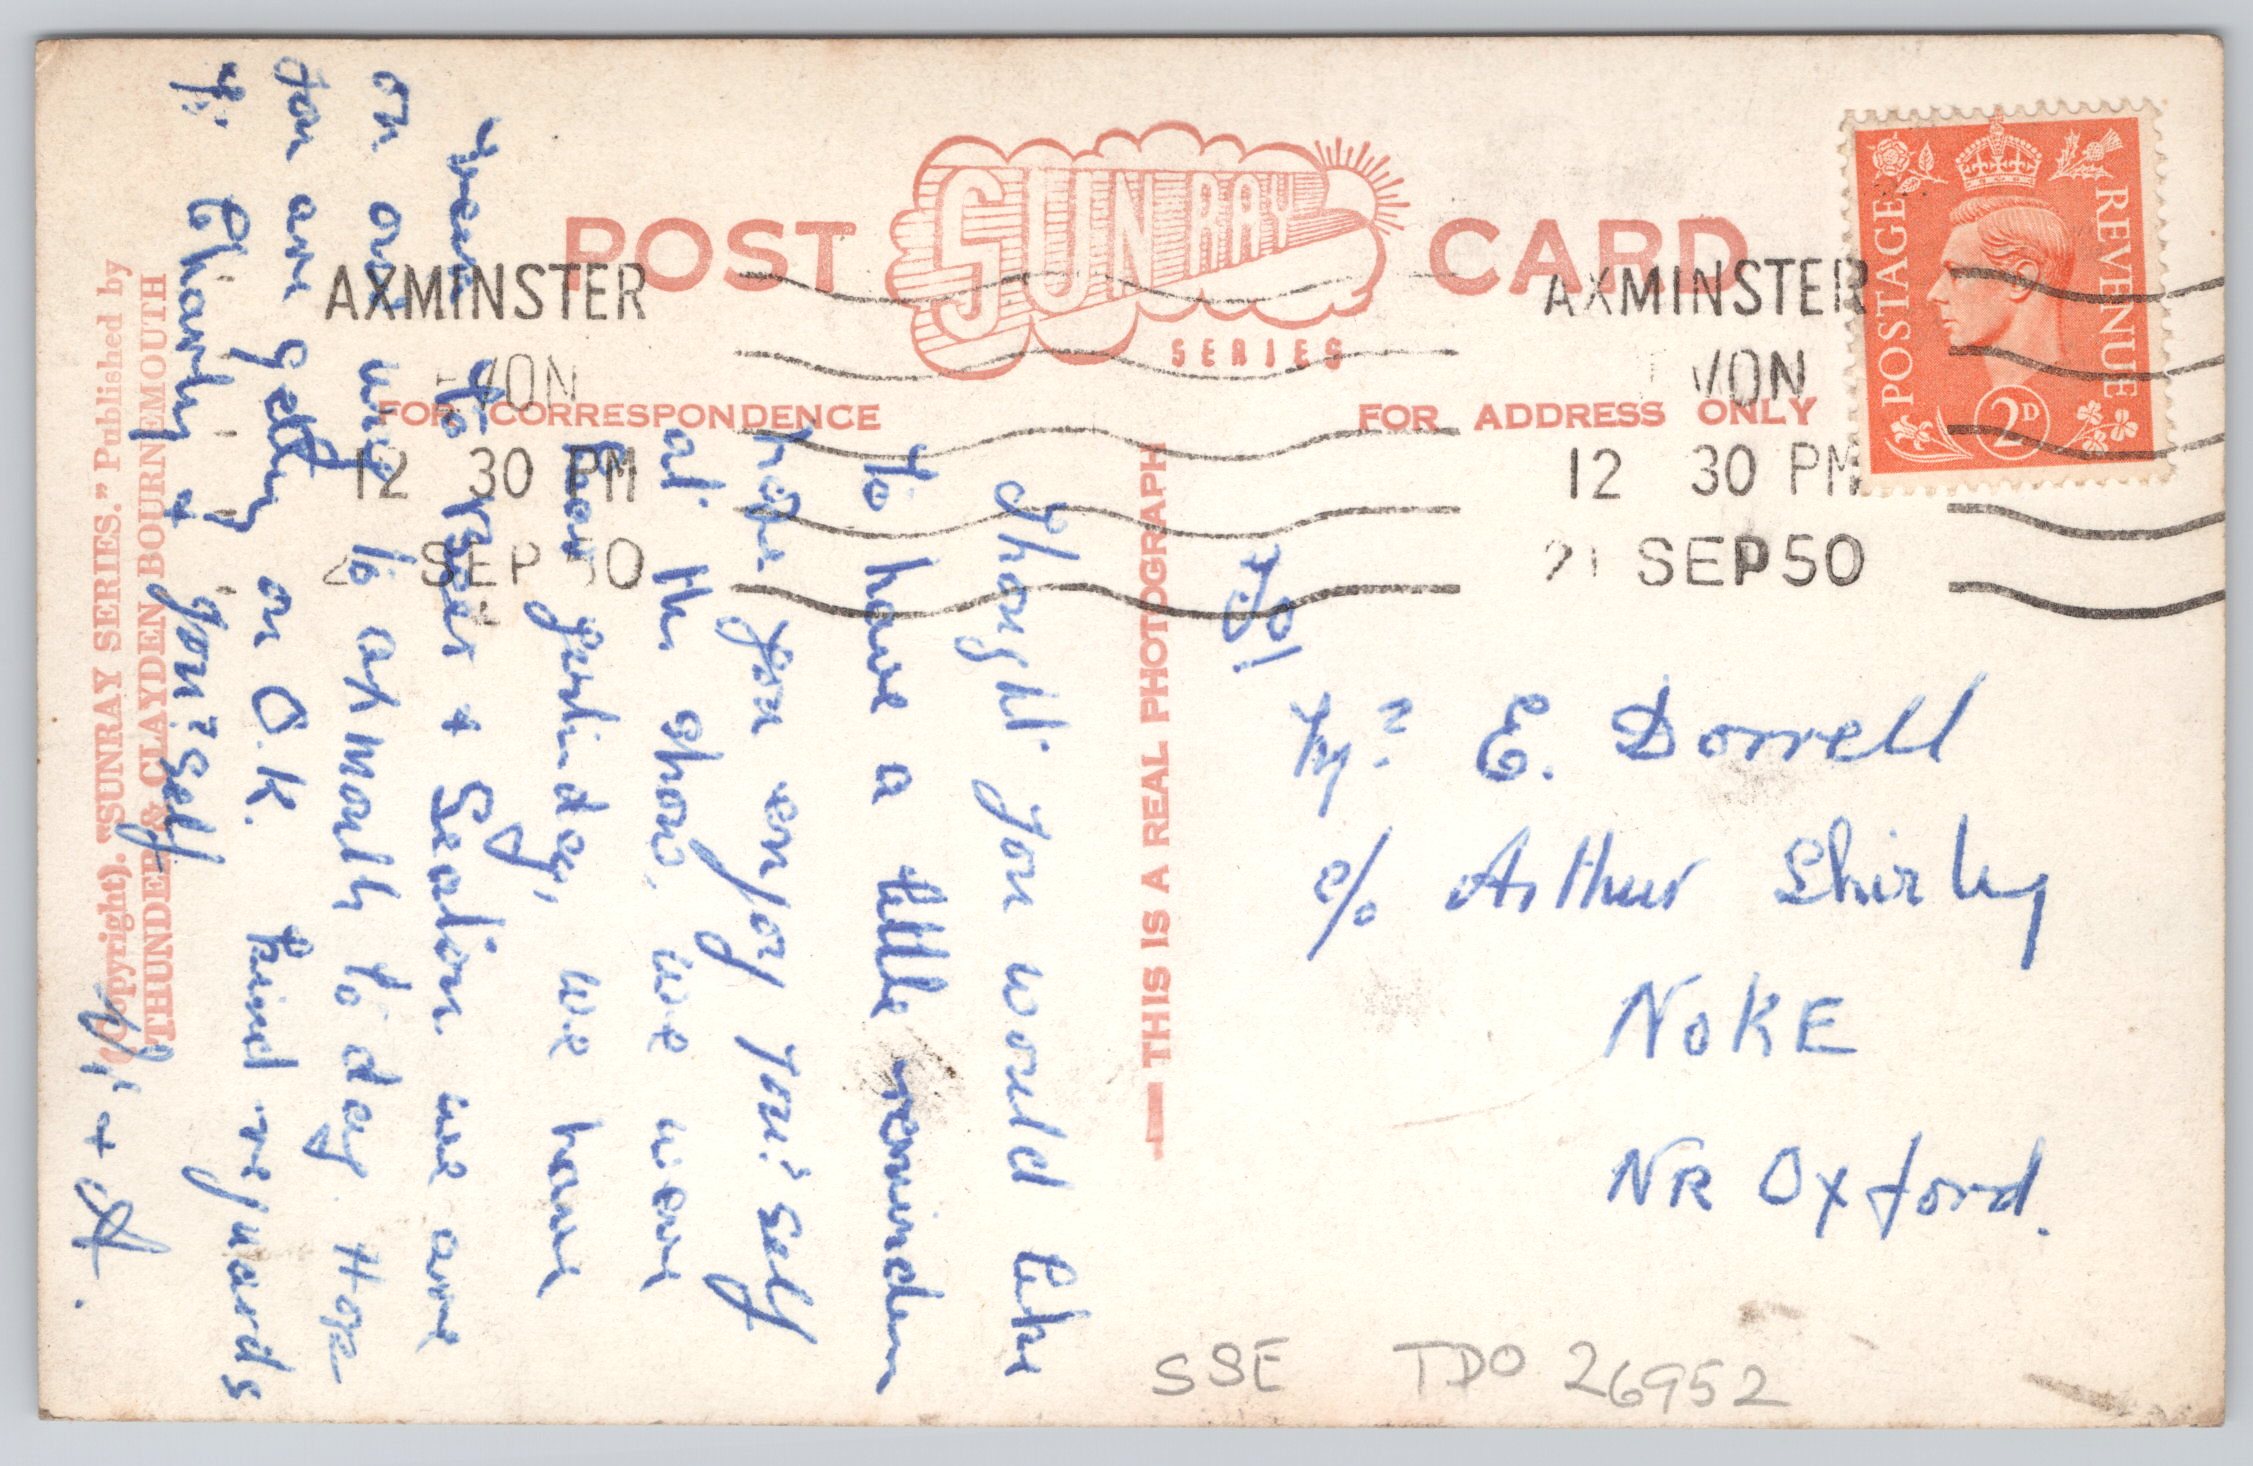 POST CARD
SUNRAY
SERIES
FOR CORRESPONDENCE
FOR ADDRESS ONLY
POSTAGE
REVENUE
2D
AXMINSTER
VON
12 30 PM
2 SEP 50
AXMINSTER
VON
12 30 PM
21 SEP 50
THIS IS A REAL PHOTOGRAPH
(Copyright). "SUNRAY SERIES." Published by
THUNDER & CLAYDEN BOURNEMOUTH
Thought you would like
to have a little reminder
hope you enjoy your self
at the show, we were
there yesterday, we have
been to Beer & Seaton we are
on our way to Exmouth to day. Hope
you are getting on O.K. kind regards
to Charly & your self
V. + A.
To!
Mr. E. Dorrell
c/o Arthur Shirley
NOKE
NR Oxford.
SSE TDO 26952